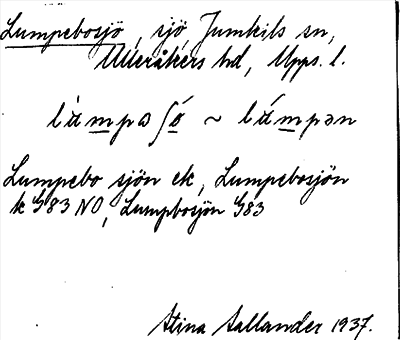 Lumpebosjö, sjö, Jumkils sn,
Ulleråkers hd, Upps. l.
làmpəʃo ~ lámpən
Lumpebo sjön ek, Lumpebosjön
k G83 NO, Lumpbosjön G83
Stina Sallander 1937.